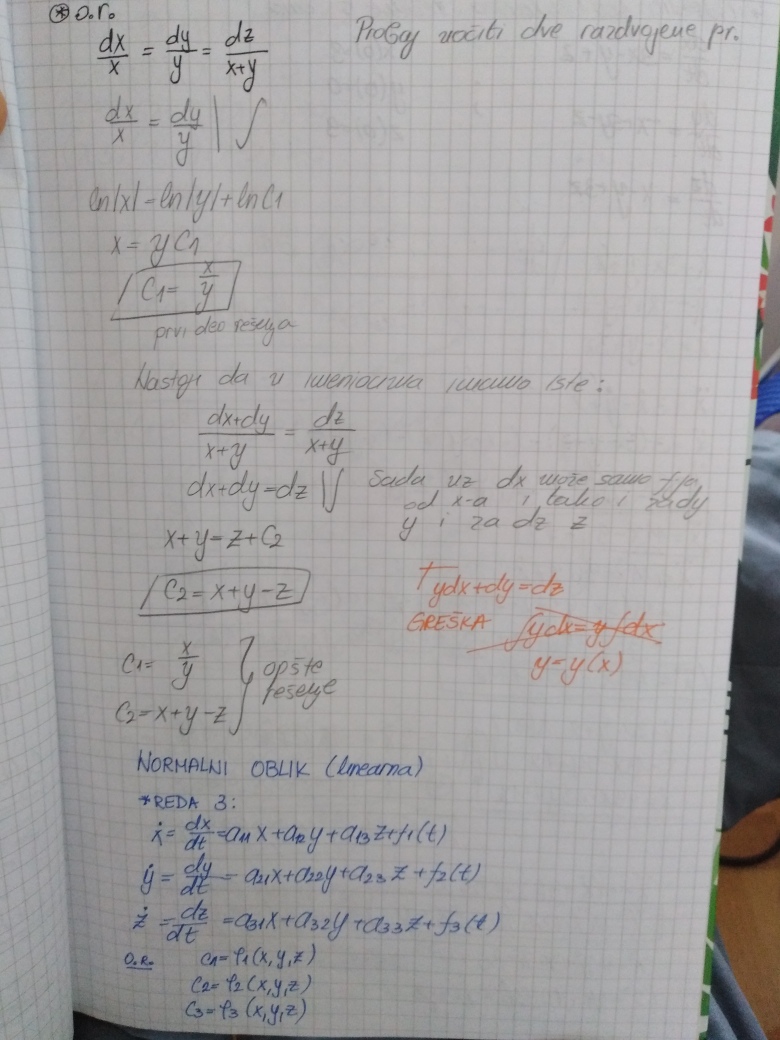 ⊛ O.R.
dx/x = dy/y = dz/(x+y)
Probaj uočiti dve razdvojene pr.
dx/x = dy/y | ∫
ln|x| = ln|y| + ln C1
x = y C1
C1 = x/y
prvi deo rešenja
Nastoji da u imeniocima imamo iste:
(dx+dy)/(x+y) = dz/(x+y)
dx+dy=dz | ∫
Sada uz dx može samo fja
od x-a i tako i za dy
y i za dz z
x+y=z+C2
C2 = x+y-z
ydx+dy=dz
GREŠKA ∫ydx=y∫dx
y=y(x)
C1= x/y
C2=x+y-z
opšte
rešenje
NORMALNI OBLIK (linearna)
*REDA 3:
ẋ = dx/dt = a11x+a12y+a13z+f1(t)
ẏ = dy/dt = a21x+a22y+a23z+f2(t)
ż = dz/dt = a31x+a32y+a33z+f3(t)
O.R. C1=φ1(x,y,z)
C2=φ2(x,y,z)
C3=φ3(x,y,z)